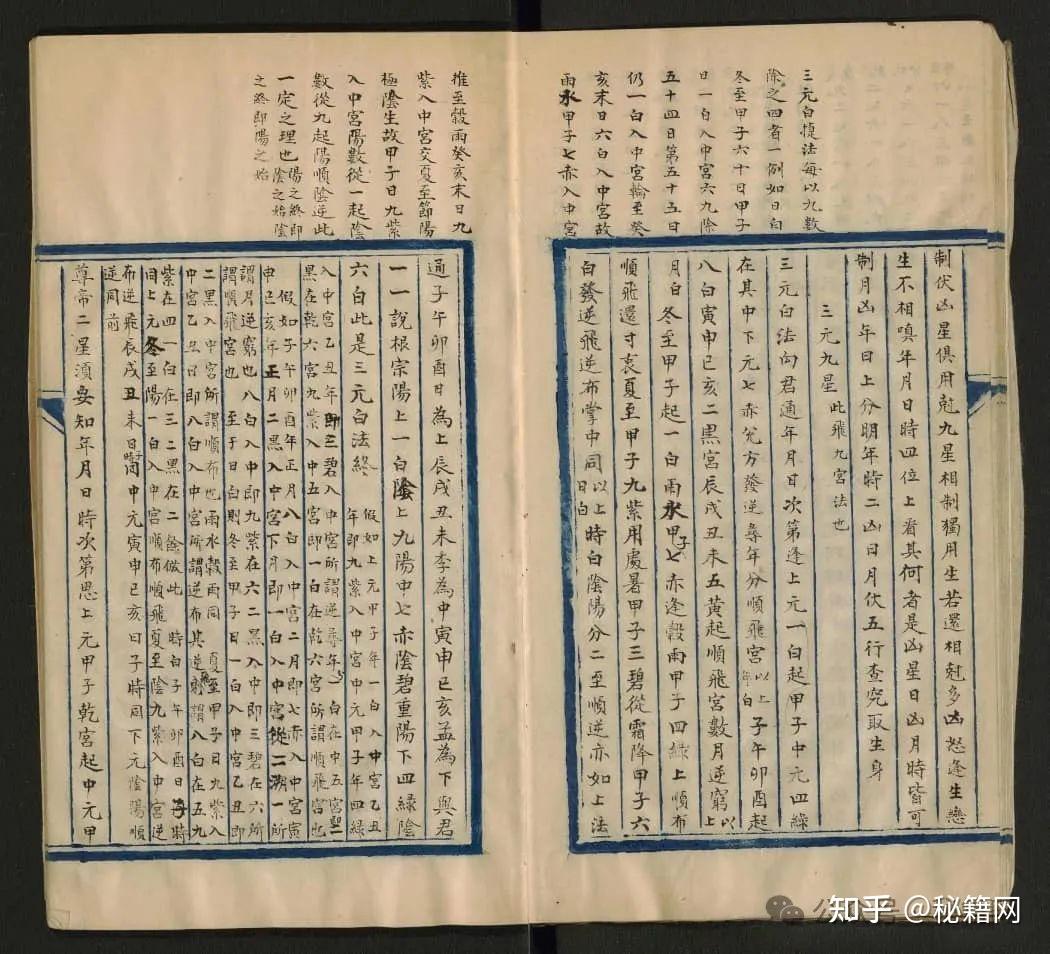 三元白積法每以九數
除之四者一例如日白
冬至甲子六十日甲子
日一白入中宮六九除
五十四日第五十五日
仍一白入中宮輪至癸
亥末日六白入中宮故
雨水甲子七赤入中宮
制伏凶星俱用尅九星相制獨用生若還相尅多凶怒逢生戀
生不相嗔年月日時四位上看其何者是凶星日凶月時皆可
制月凶年日上分明年時二凶日月伏五行查究取生身
三元九星 此飛九宮法也
三元白法向君通年月日次第逢上元一白起甲子中元四綠
在其中下元七赤兊方發逆尋年分順飛宮以上年白子午卯酉起
八白寅申巳亥二黑宮辰戌丑未五黃起順飛宮數月逆窮以上
月白 冬至甲子起一白雨水甲子七赤逢穀雨甲子四綠上順布
順飛還寸衷夏至甲子九紫用處暑甲子三碧從霜降甲子六
白發逆飛逆布掌中同以上日白時白陰陽分二至順逆亦如上法
推至穀雨癸亥末日九
紫入中宮交夏至節陽
極陰生故甲子日九紫
入中宮陽數從一起陰
數從九起陽順陰逆此
一定之理也陽之終即陰之始陰
之終即陽之始
通子午卯酉日為上辰戌丑未季為中寅申巳亥孟為下與君
一一說根宗陽上一白陰上九陽中七赤陰碧重陽下四綠陰
六白此是三元白法終 假如上元甲子年一白入中宮乙丑
年即九紫入中宮中元甲子年四綠
入中宮乙丑年即三碧入中宮所謂逆尋年 一白在中五宮二
黑在乾六宮九紫入中五宮即一白在乾六宮所謂順飛宮也
假如子午卯酉年正月八白入中宮二月即七赤入中宮寅
申巳亥年正月二黑入中宮下月即一白入中宮從二溯一所
謂月逆窮也八白入中即九紫在六二黑入中即三碧在六所
謂順飛宮也 至于日白則冬至甲子日一白入中宮乙丑即
二黑入中宮所謂順布也雨水穀雨同 夏至甲子日九紫入
中宮乙丑日即八白入中宮所謂逆布其逆飛謂八白在五九
紫在四一白在三二黑在二餘倣此 時白子午卯酉日每時
日上元冬至陽一白入中宮順布順飛夏至陰九紫入中宮逆
布逆飛辰戌丑未日子時中元寅申巳亥日子時同下元陰陽順
逆同前
尊帝二星須要知年月日時次第思上元甲子乾宮起中元甲
知乎 @秘籍网